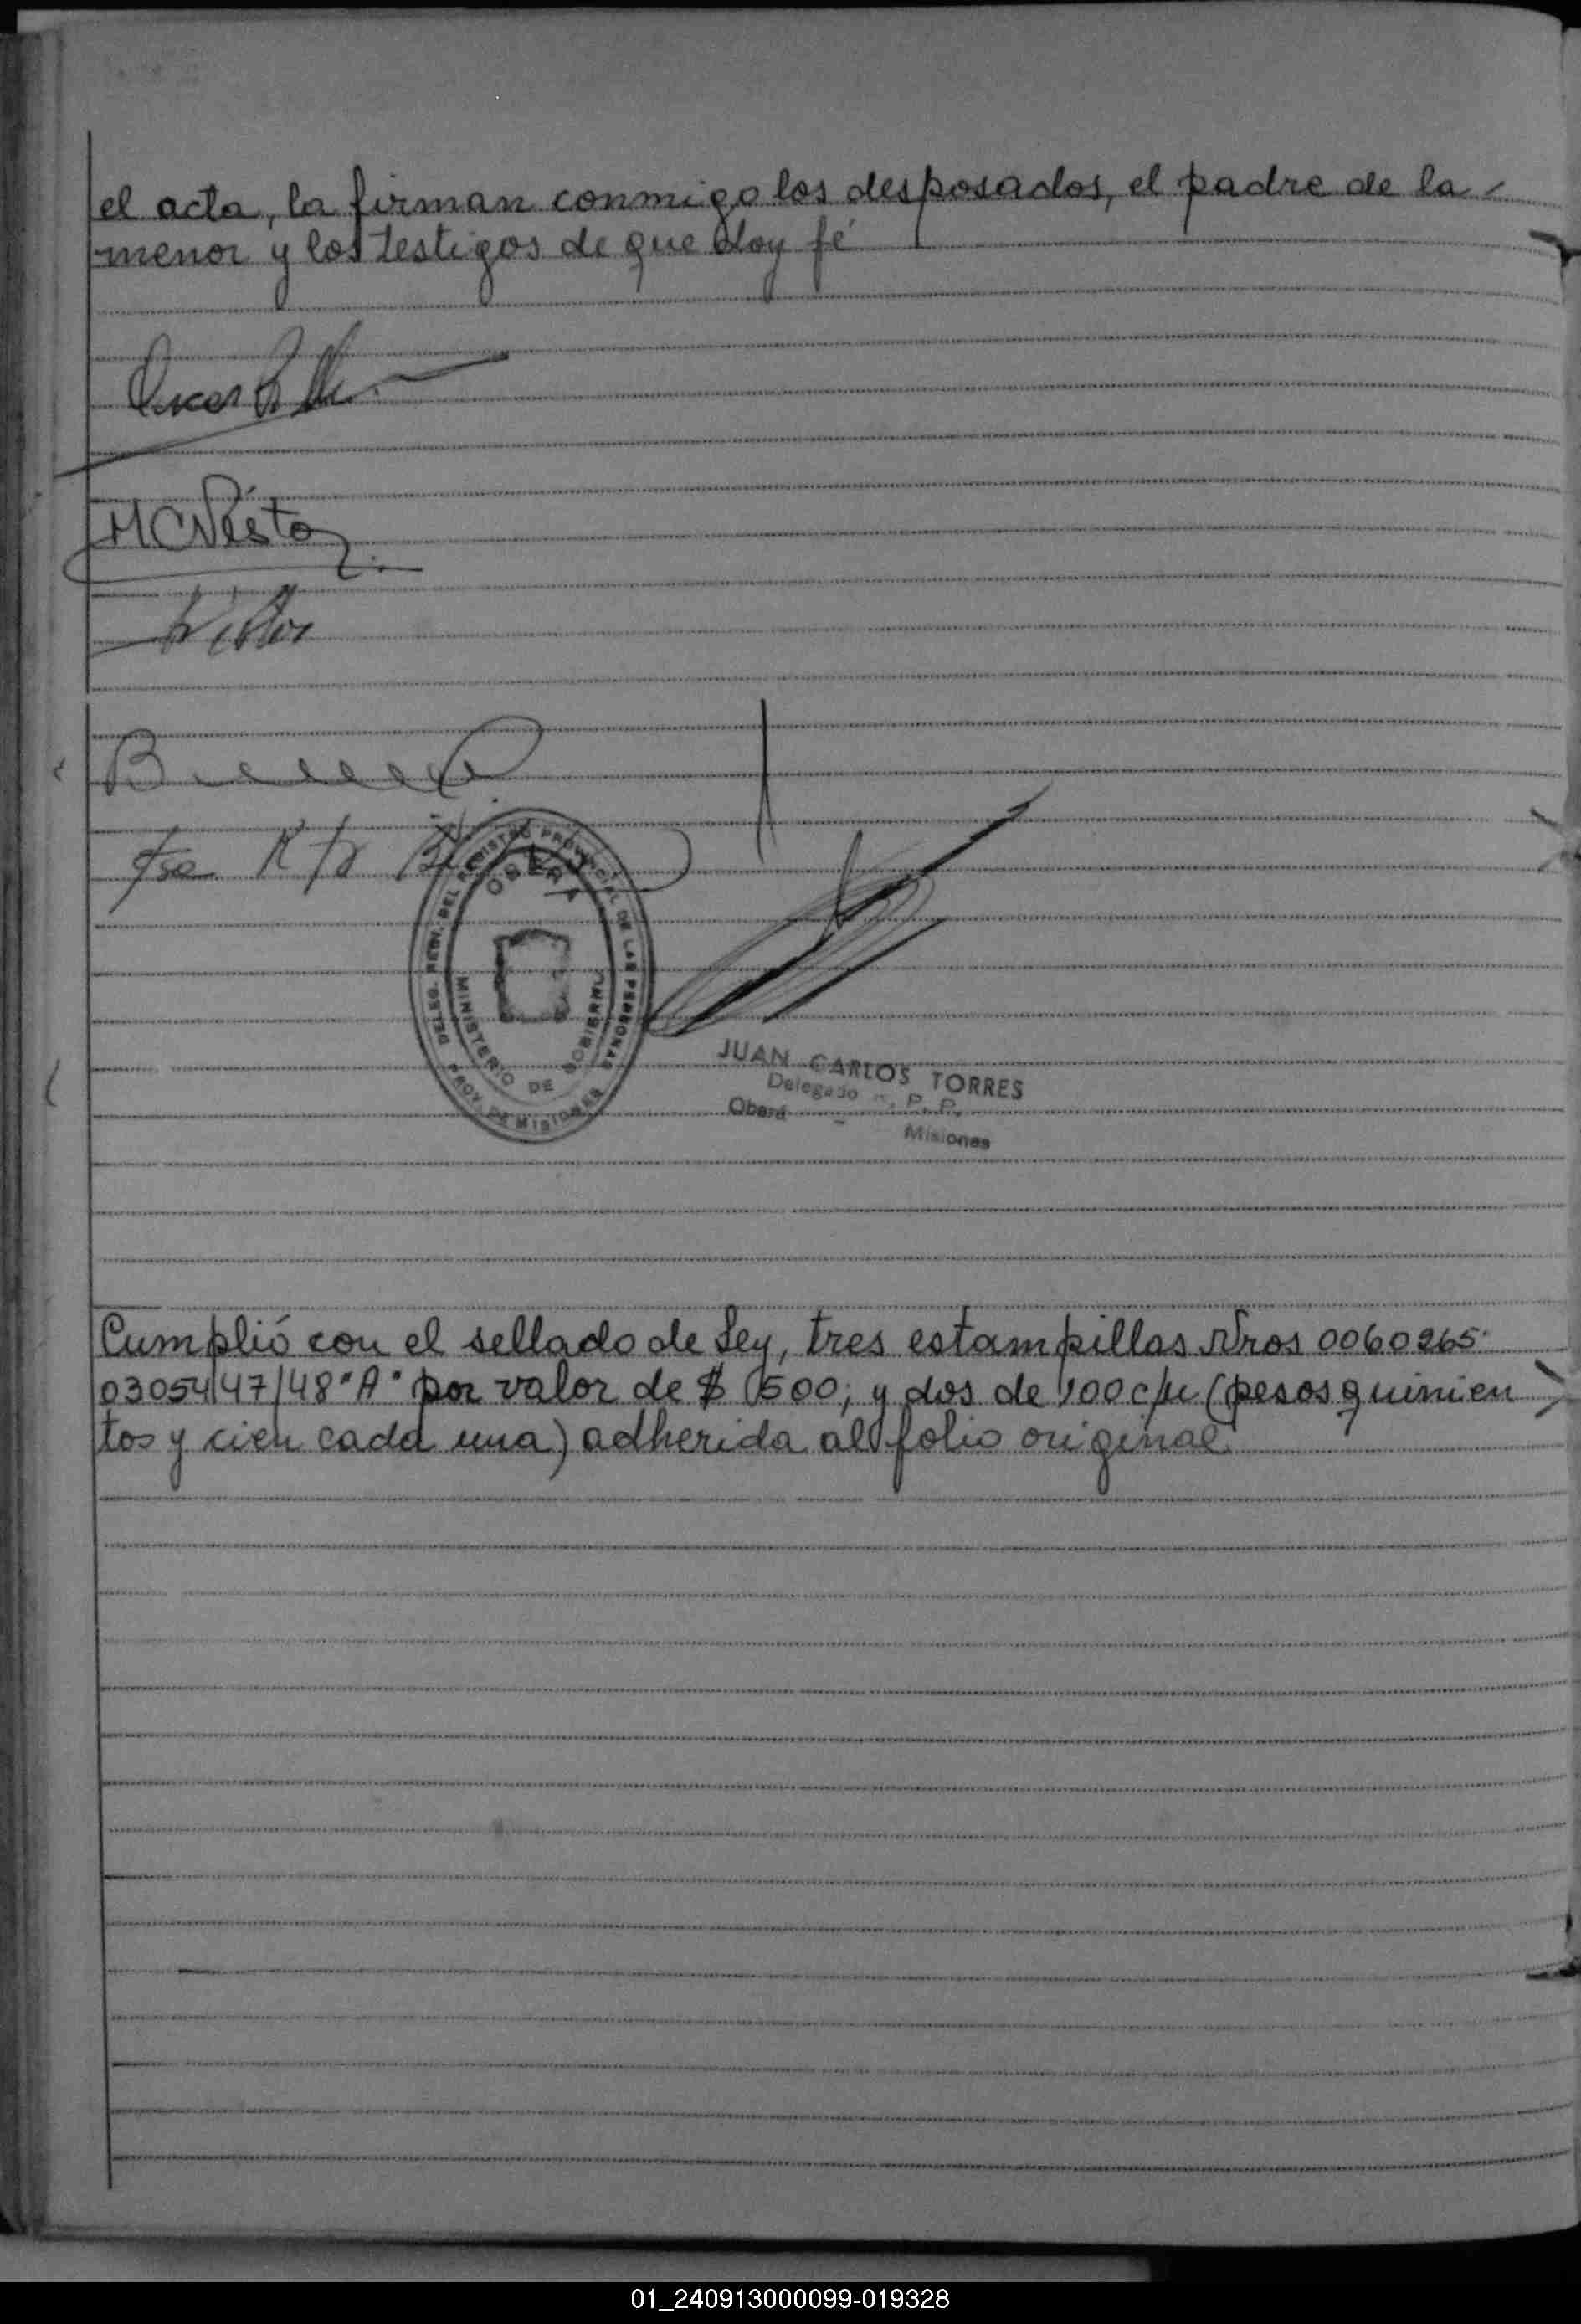 el acta, la firman conmigo los desposados, el padre de la
menor y los testigos de que doy fé
Oscar
MCNésto
DELEG. REGI. DEL REGISTRO PROVINCIAL DE LAS PERSONAS
OBERA
MINISTERIO DE GOBIERNO
PROV. DE MISIONES
JUAN CARLOS TORRES
Delegado R. P. P.
Oberá - Misiones
Cumplió con el sellado de Ley, tres estampillas Nros 0060265
0305447/48 "A" por valor de $ 500; y dos de 100 c/u (pesos quinien
tos y cien cada una) adherida al folio original
01_240913000099-019328